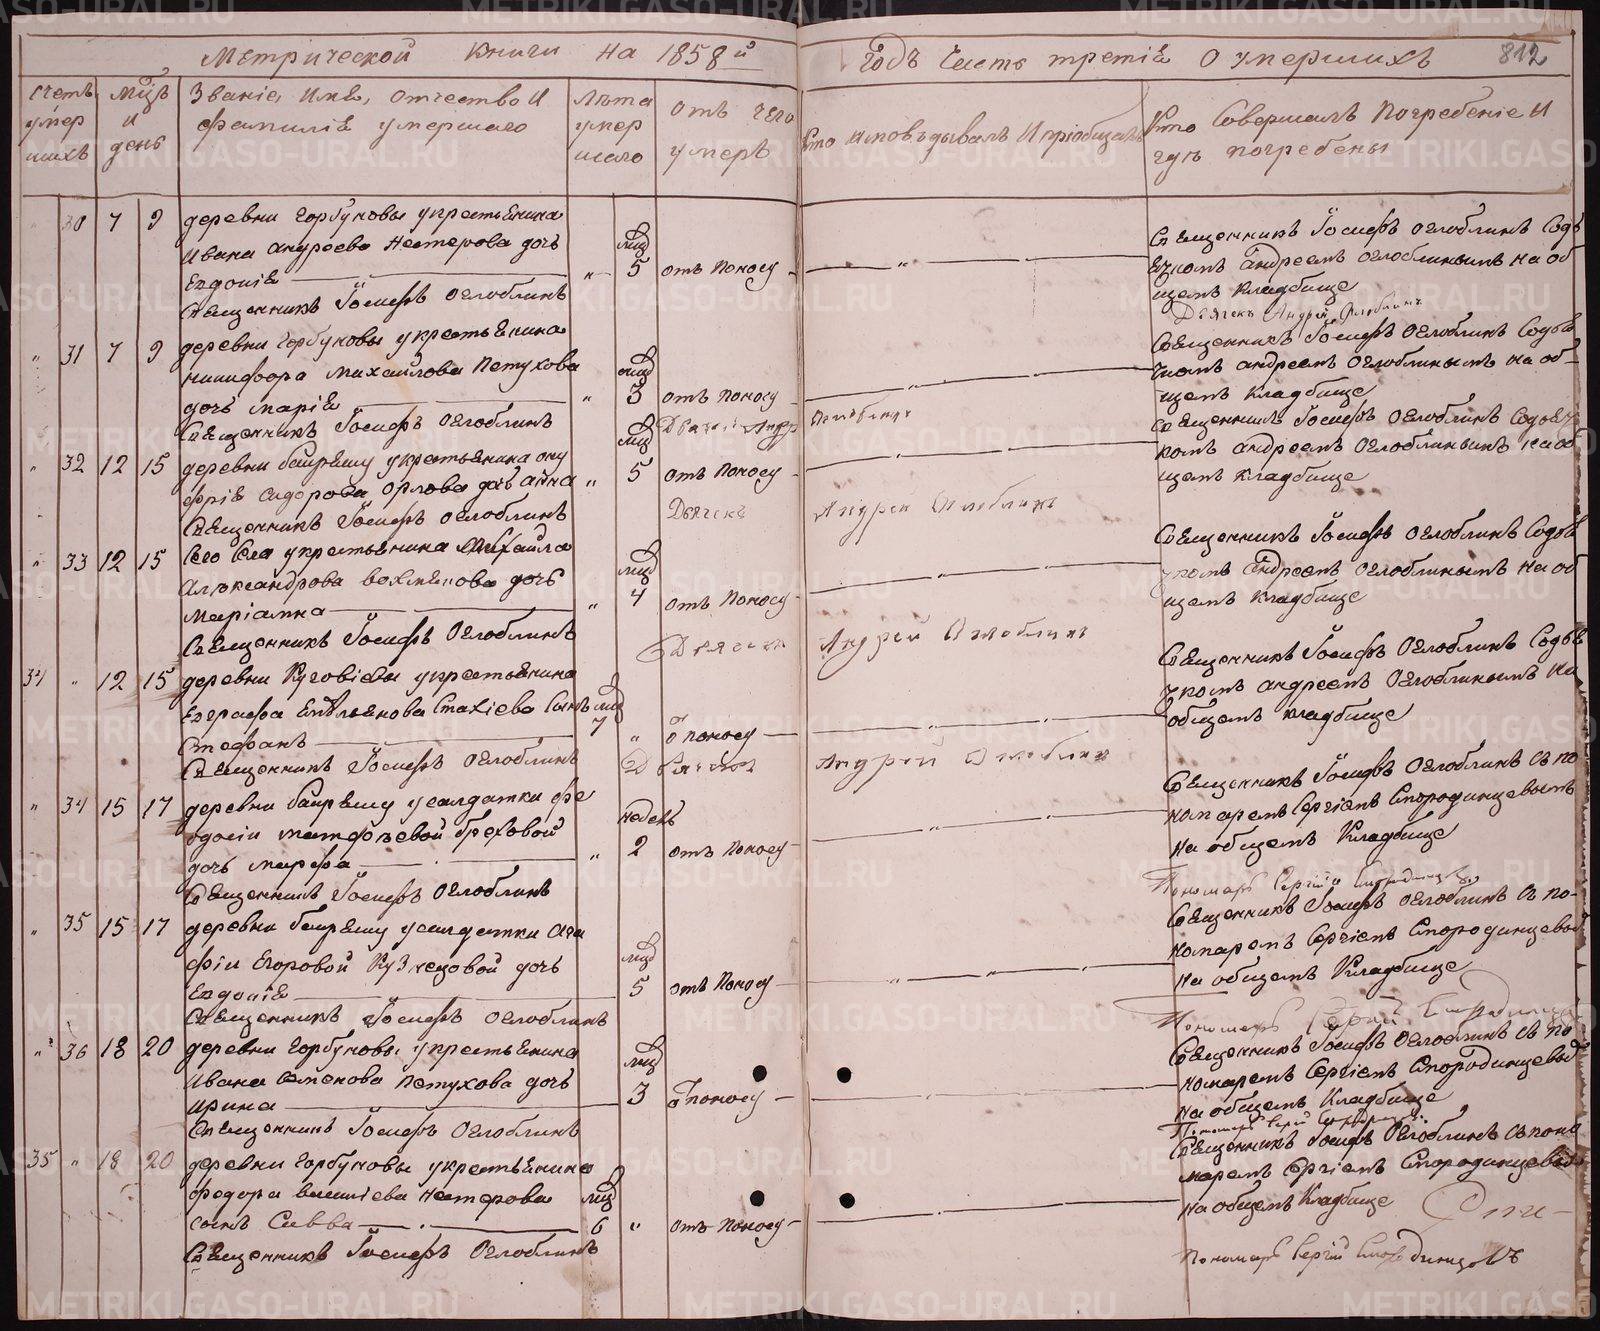 Метрической книги на 1858й
Годъ Часть третіѣ О умершихъ 812
Счетъ умер шихъ
Мцъ и день
Званіе, Имѣ, отчество И фамиліѣ умершаго
Лѣта умер шаго
отъ чего умеръ
Кто исповѣдывалъ И пріобщалъ
Кто Совершалъ Погребеніе И гдѣ погребены
" 30 7 9 деревни Горбуновы укрестьѣнина
Ивана андреева Нестерова дочь
Евдокіѣ
" мцъ 5 отъ Поносу
Свѣщенникъ Іосифъ Оглоблинъ
Свѣщенникъ Іосифъ Оглоблинъ Содь
ѣчкомъ андреемъ оглоблинымъ на об
щемъ Кладбище
Дьячекъ Андрей Оглоблинъ
" 31 7 9 деревни Горбуновы укрестьѣнина
никифора михайлова Петухова
дочь маріѣ
" мцъ 3 отъ поносу
Свѣщенникъ Іосифъ Оглоблинъ
Дьячекъ Андр Оглоблинъ
Свѣщенникъ Іосифъ Оглоблинъ Содьѣ
чкомъ андреемъ Оглоблинымъ на об-
щемъ Кладбище
" 32 12 15 деревни укрестьѣнина ону
фріѣ сидорова Орлова дочь анна
" мцъ 5 отъ поносу
Свѣщенникъ Іосифъ оглоблинъ
Дьячекъ Андрей Оглоблинъ
Свѣщенникъ Іосифъ Оглоблинъ Содьѣч
комъ андреемъ Оглоблинымъ на об
щемъ Кладбище
" 33 12 15 Сего Села укрестьѣнина Михайла
Александрова дочь
Маріамна
" мцъ 4 отъ Поносу
Свѣщенникъ Іосифъ Оглоблинъ
Дьячекъ Андрей Оглоблинъ
Свѣщенникъ Іосифъ Оглоблинъ Содьѣ
чкомъ андреемъ Оглоблинымъ на об
щемъ Кладбище
34 " 12 15 деревни укрестьѣнина
Евграфа Емѣльѣнова Стахіева Сынъ
Стефанъ
мцъ 7 " ѿ поносу
Свѣщенникъ Іосифъ Оглоблинъ
Дьячекъ Андрей Оглоблинъ
Свѣщенникъ Іосифъ Оглоблинъ Содьѣ
чкомъ андреемъ Оглоблинымъ на
общемъ кладбище
" 34 15 17 деревни усалдатки фе
одосіи матфѣевой Греховой
дочь марфа
" недель 2 отъ поносу
Свѣщенникъ Іосифъ Оглоблинъ
Свѣщенникъ Іосифъ Оглоблинъ Съ по
номаремъ Сергіемъ Смородинцевымъ
На общемъ Кладбище
Пономарь Сергій Смородинцевъ
" 35 15 17 деревни усалдатки Ага
фіи Егоровой Кузнецовой дочь
Евдокіѣ
мцъ 5 отъ Поносу
Свѣщенникъ Іосифъ Оглоблинъ
Свѣщенникъ Іосифъ Оглоблинъ Съ по-
номаремъ Сергіемъ Смородинцевы
На общемъ Кладбище
Пономарь Сергій Смородинцевъ
" 36 18 20 деревни Горбуновы укрестьѣнина
Ивана семенова Петухова дочь
Ирина
мцъ 3 ѿ поносу
Свѣщенникъ Іосифъ Оглоблинъ
Свѣщенникъ Іосифъ Оглоблинъ Съ по
номаремъ Сергіемъ Смородинцевы
На общемъ Кладбище
Пономарь Сергій Смородинцевъ
35 " 18 20 деревни Горбуновы укрестьѣнина
Федора Нестерова
сынъ Савва
мцъ 6 " отъ поносу
Свѣщенникъ Іосифъ Оглоблинъ
Свѣщенникъ Іосифъ Оглоблинъ съ поно
маремъ Сергіемъ Смородинцевы
на общемъ Кладбище
Пономарь Сергій Смородинцовъ
METRIKI.GASO-URAL.RU